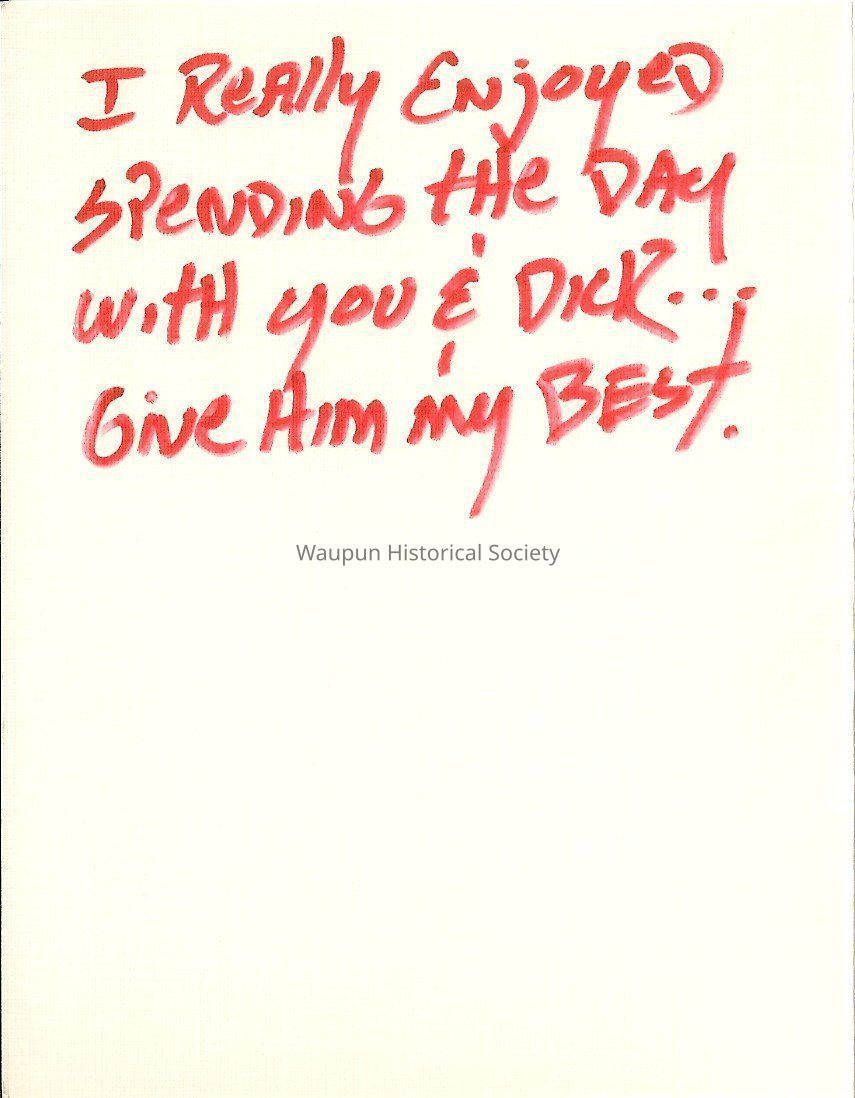 I Really Enjoyed
Spending the Day
with you & Dick...
Give Him my Best.
Waupun Historical Society